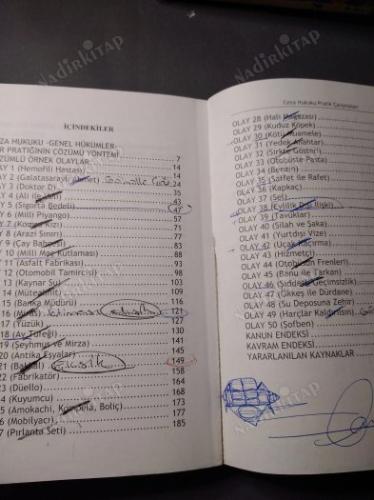 İÇİNDEKİLER
ZA HUKUKU -GENEL HÜKÜMLER-
R PRATİĞİNİN ÇÖZÜMÜ YÖNTEMİ 7
ZÜMLÜ ÖRNEK OLAYLAR 14
AY 1 (Hemofili Hastası) 14
AY 2 (Galatasaraylı
AY 3 (Doktor 35
AY 4 (Ali ile 43
AY 5 (Siporta Bedeli) 47
AY 6 (Milli Piyango) 57
Y 7 (Kozmik 63
Y 8 (Arazi Sınırı) 77
Y 9 (Çay Bahçesi) 83
Y 10 (Milli Maç Kutlaması) 88
Y 11 (Asfalt Fabrikası) 93
Y 12 (Otomobil Tamircisi) 98
Y 13 (Kaynar Su) 103
Y 14
Y 15 (Banka Müdürü) 116
Y 16 121
Y 17 (Yüzük) 127
Y 18 (Av Tüfeği) 130
Y 19 (Şeyhmus ve Mirza) 141
20 (Antika Eşyalar) 145
21 149
22 (Fabrikatör) 158
23 (Düello) 164
24 (Kuyumcu) 168
25 (Amokachi, Kompela, Boliç) 173
26 (Mobilyacı) 177
27 (Pırlanta Seti) 185
Ceza Hukuku Pratik Çalışmaları
OLAY 28 (Halı Mağazası)
OLAY 29 (Kuduz Köpek)
OLAY 30 (Kötü Muamele)
OLAY 31 (Yedek Anahtar)
OLAY 32 (Sirkte Gösteri)
OLAY 33 (Otobüste Pasta)
OLAY 34 (Benzin)
OLAY 35 (Saffet ile Rafet)
OLAY 36 (Kapkaç)
OLAY 37 (Sel)
OLAY 38 (Evlilik Dışı İlişki)
OLAY 39 (Tavuklar)
OLAY 40 (Silah ve Şaka)
OLAY 41 (Yurtdışı Vize)
OLAY 42 (Uçak Kaçırma)
OLAY 43 (Hizmetçi)
OLAY 44 (Otobüsün Frenleri)
OLAY 45 (Banu ile Tarkan)
OLAY 46 (Şiddetli Geçimsizlik)
OLAY 47 (Ökkeş ile Dürdane)
OLAY 48 (Su Deposuna Zehir)
OLAY 49 (Harçlar
OLAY 50 (Şofben)
KANUN ENDEKSİ
KAVRAM ENDEKSİ
YARARLANILAN KAYNAKLAR
NADİRKİTAP